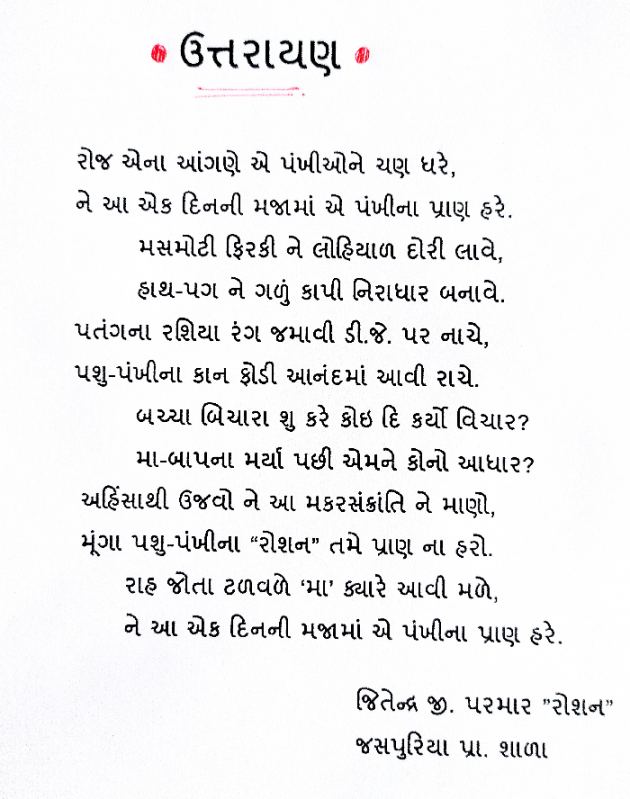 ઉત્તરાયણ
રોજ એના આંગણે એ પંખીઓને ચણ ધરે,
ને આ એક દિનની મજામાં એ પંખીના પ્રાણ હરે.
મસમોટી ફિરકી ને લોહિયાળ દોરી લાવે,
હાથ-પગ ને ગળું કાપી નિરાધાર બનાવે.
પતંગના રશિયા રંગ જમાવી ડી.જે. પર નાચે,
પશુ-પંખીના કાન ફોડી આનંદમાં આવી રાચે.
બચ્ચા બિચારા શુ કરે કોઇ દિ કર્યો વિચાર?
મા-બાપના મર્યા પછી એમને કોનો આધાર?
અહિંસાથી ઉજવો ને આ મકરસંક્રાંતિ ને માણો,
મૂંગા પશુ-પંખીના “રોશન” તમે પ્રાણ ના હરો.
રાહ જોતા ટળવળે ‘મા’ ક્યારે આવી મળે,
ને આ એક દિનની મજામાં એ પંખીના પ્રાણ હરે.
જિતેન્દ્ર જી. પરમાર ”રોશન”
જસપુરિયા પ્રા. શાળા